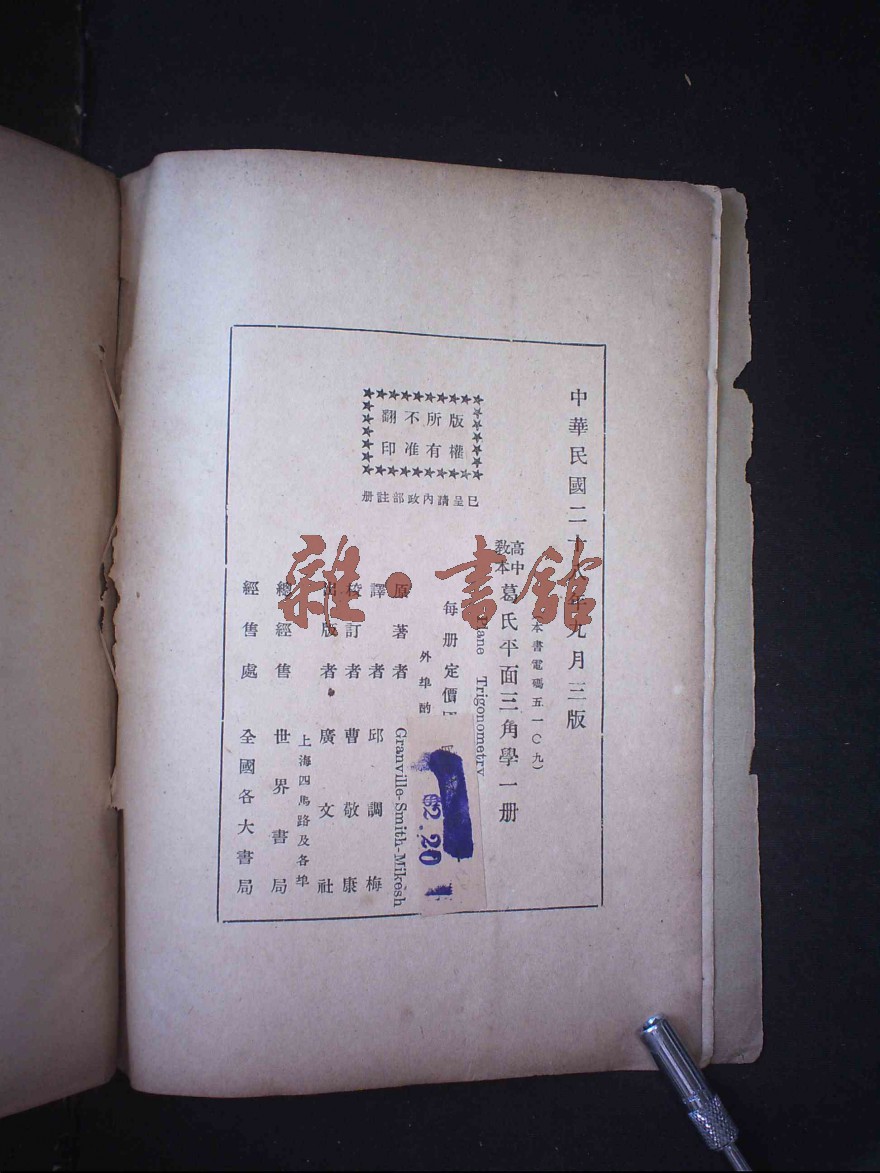 中華民國二十八年九月三版
(本書電碼五一〇九)
高中教本 葛氏平面三角學一册
Plane Trigonometry
每册定價
外埠酌
62.20
原著者 Granville-Smith-Mikesh
譯者 邱調梅
校訂者 曹敬康
出版者 廣文社
上海四馬路及各埠
總經售 世界書局
經售處 全國各大書局
版權
所有
不准
翻印
已呈請內政部註册
雜·書館